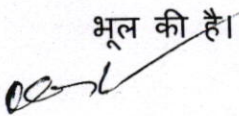 भूल की है।